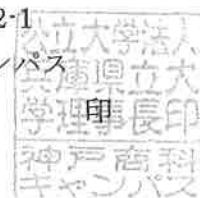 2-1
ンパス
公立大学法人
兵庫県立大
学理事長印
印
神戸商科
キャンパス